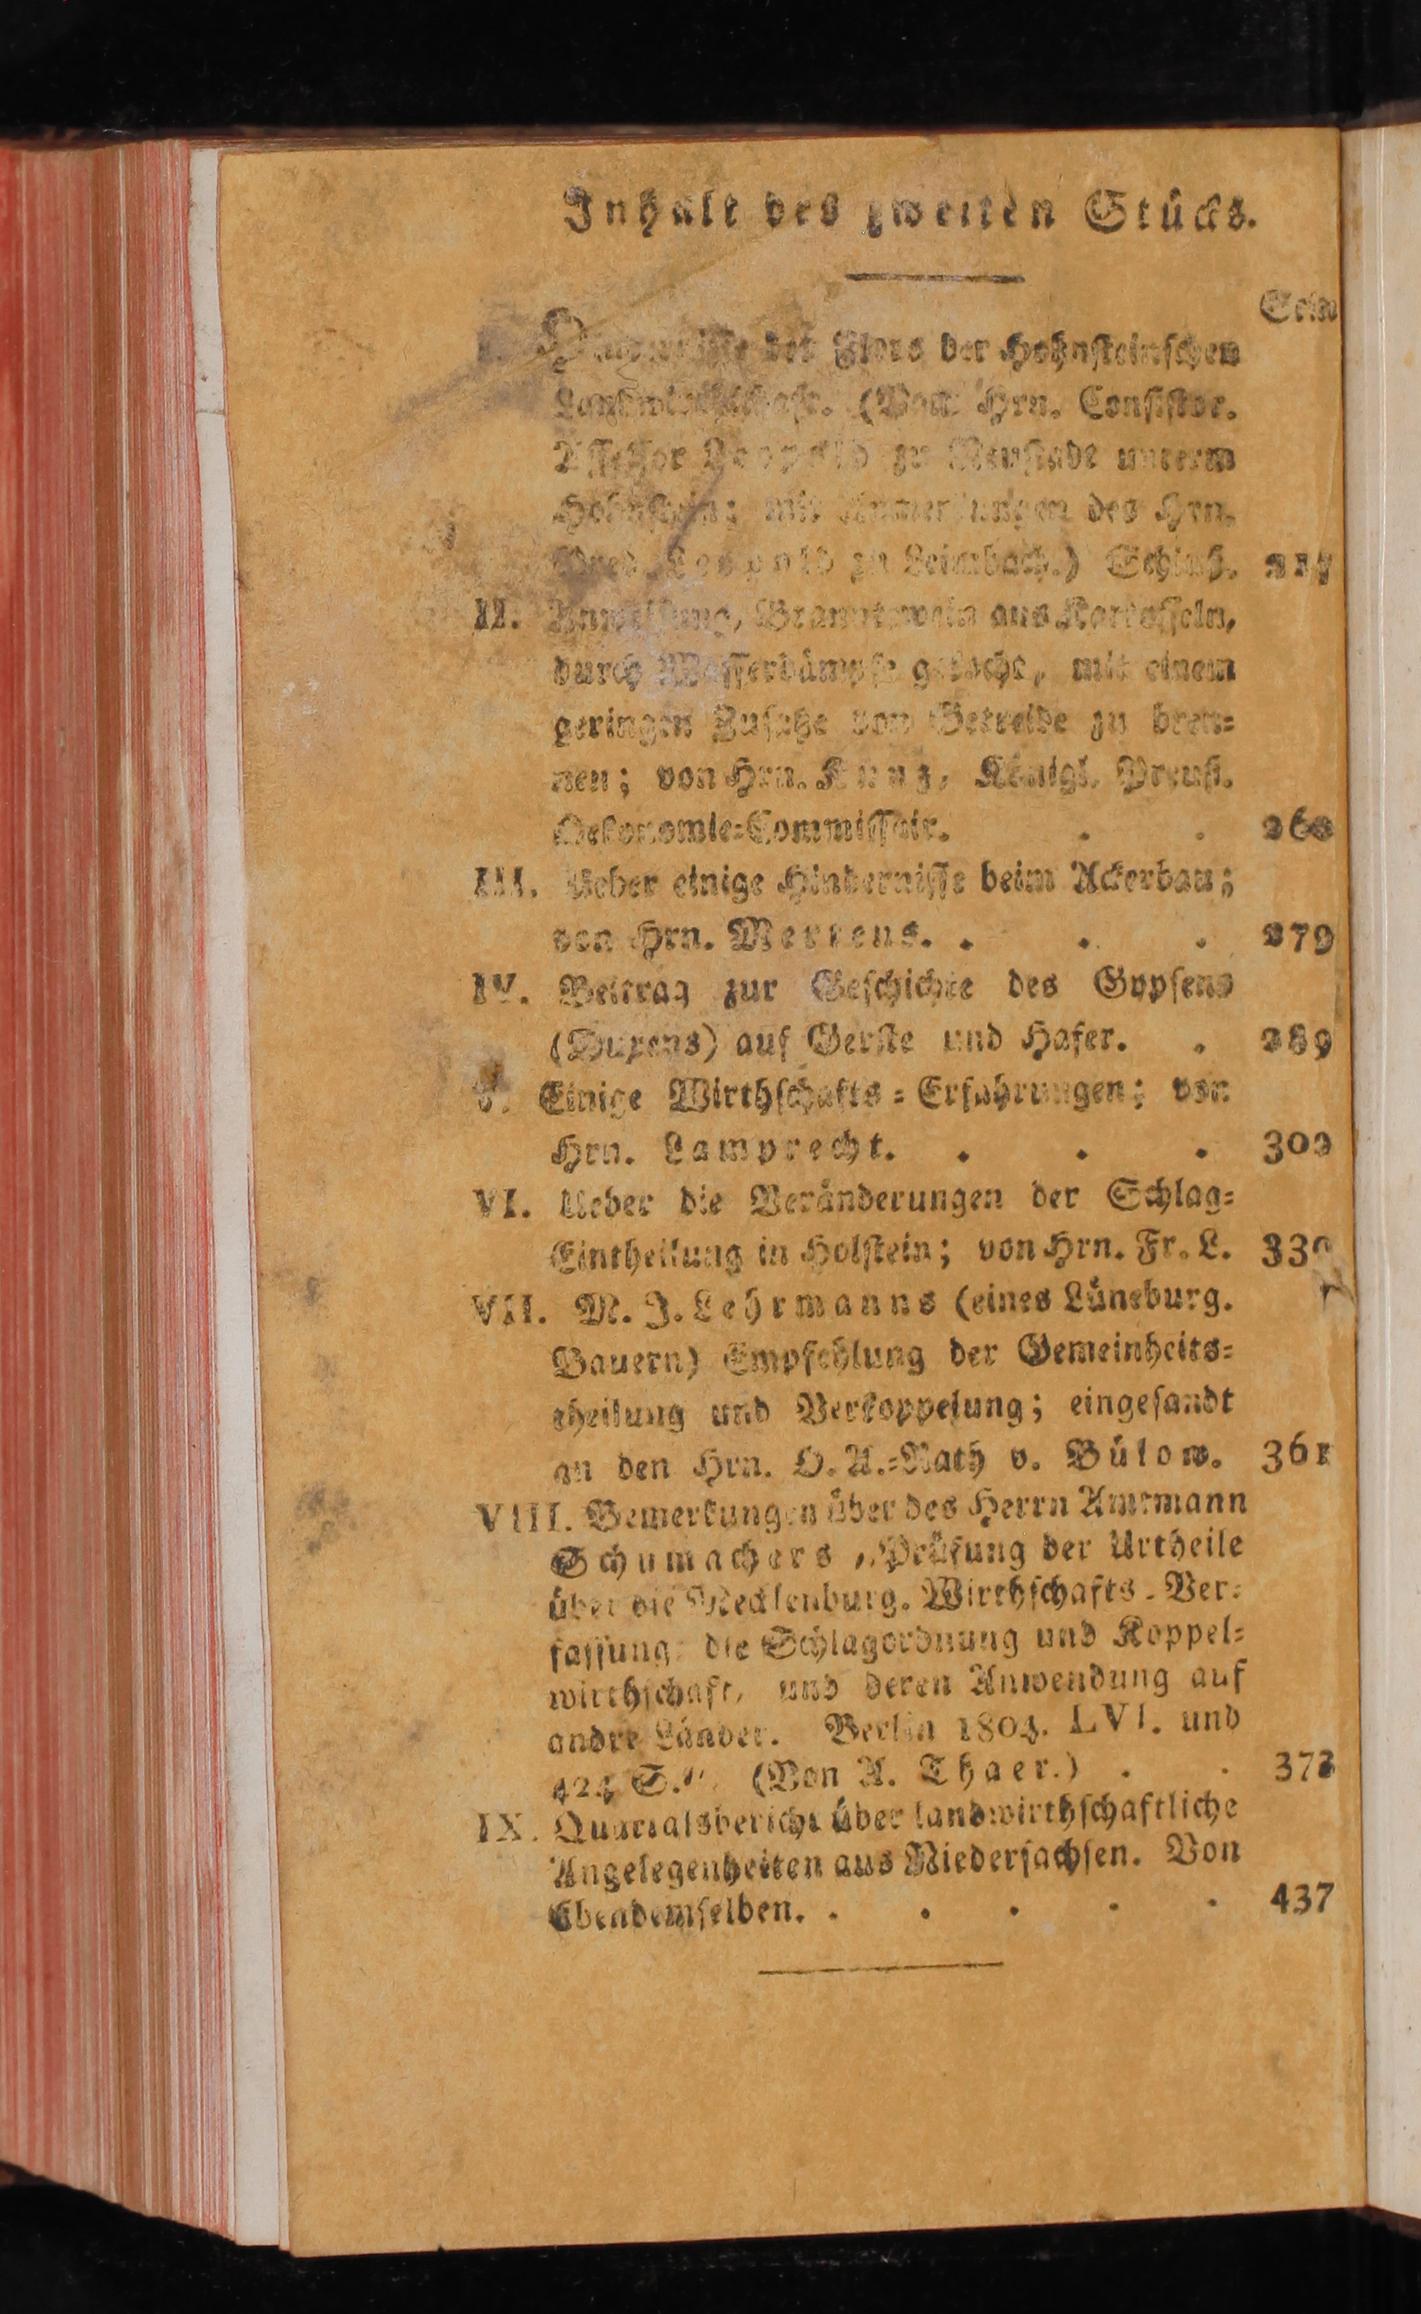 Inhalt des zweiten Stücks.
Seite
I. Hindernisse des Flors der Hohnsteinschen
Landwirthschaft. (Vom Hrn. Consistor.
Assessor Leopold zu Neustadt unterm
Hohnstein; mit Anmerkungen des Hrn.
Pred. Leopold zu Leimbach.) Schluß.
II. Anweisung, Branntewein aus Kartoffeln,
durch Wasserdämpfe gekocht, mit einem
geringen Zusatze von Getreide zu bren-
nen; von Hrn. Kunz, Königl. Preuß.
Oekonomie-Commissair. . . 260
III. Ueber einige Hindernisse beim Ackerbau;
von Hrn. Mertens. . . . 279
IV. Beitrag zur Geschichte des Gypsens
(Duxens) auf Gerste und Hafer. . 289
V. Einige Wirthschafts-Erfahrungen; von
Hrn. Lamprecht. . . . 300
VI. Ueber die Veränderungen der Schlag-
Eintheilung in Holstein; von Hrn. Fr. L. 330
VII. M. J. Lehrmanns (eines Lüneburg.
Bauern) Empfehlung der Gemeinheits-
theilung und Verkoppelung; eingesandt
an den Hrn. O. A.-Rath v. Bülow. 361
VIII. Bemerkungen über des Herrn Amtmann
Schumachers „Prüfung der Urtheile
über die Mecklenburg. Wirthschafts-Ver-
fassung, die Schlagordnung und Koppel-
wirthschaft, und deren Anwendung auf
andre Länder. Berlin 1804. LVI. und
424 S.“ (Von A. Thaer.) . . 373
IX. Quartalsbericht über landwirthschaftliche
Angelegenheiten aus Niedersachsen. Von
Ebendemselben. . . . . . 437